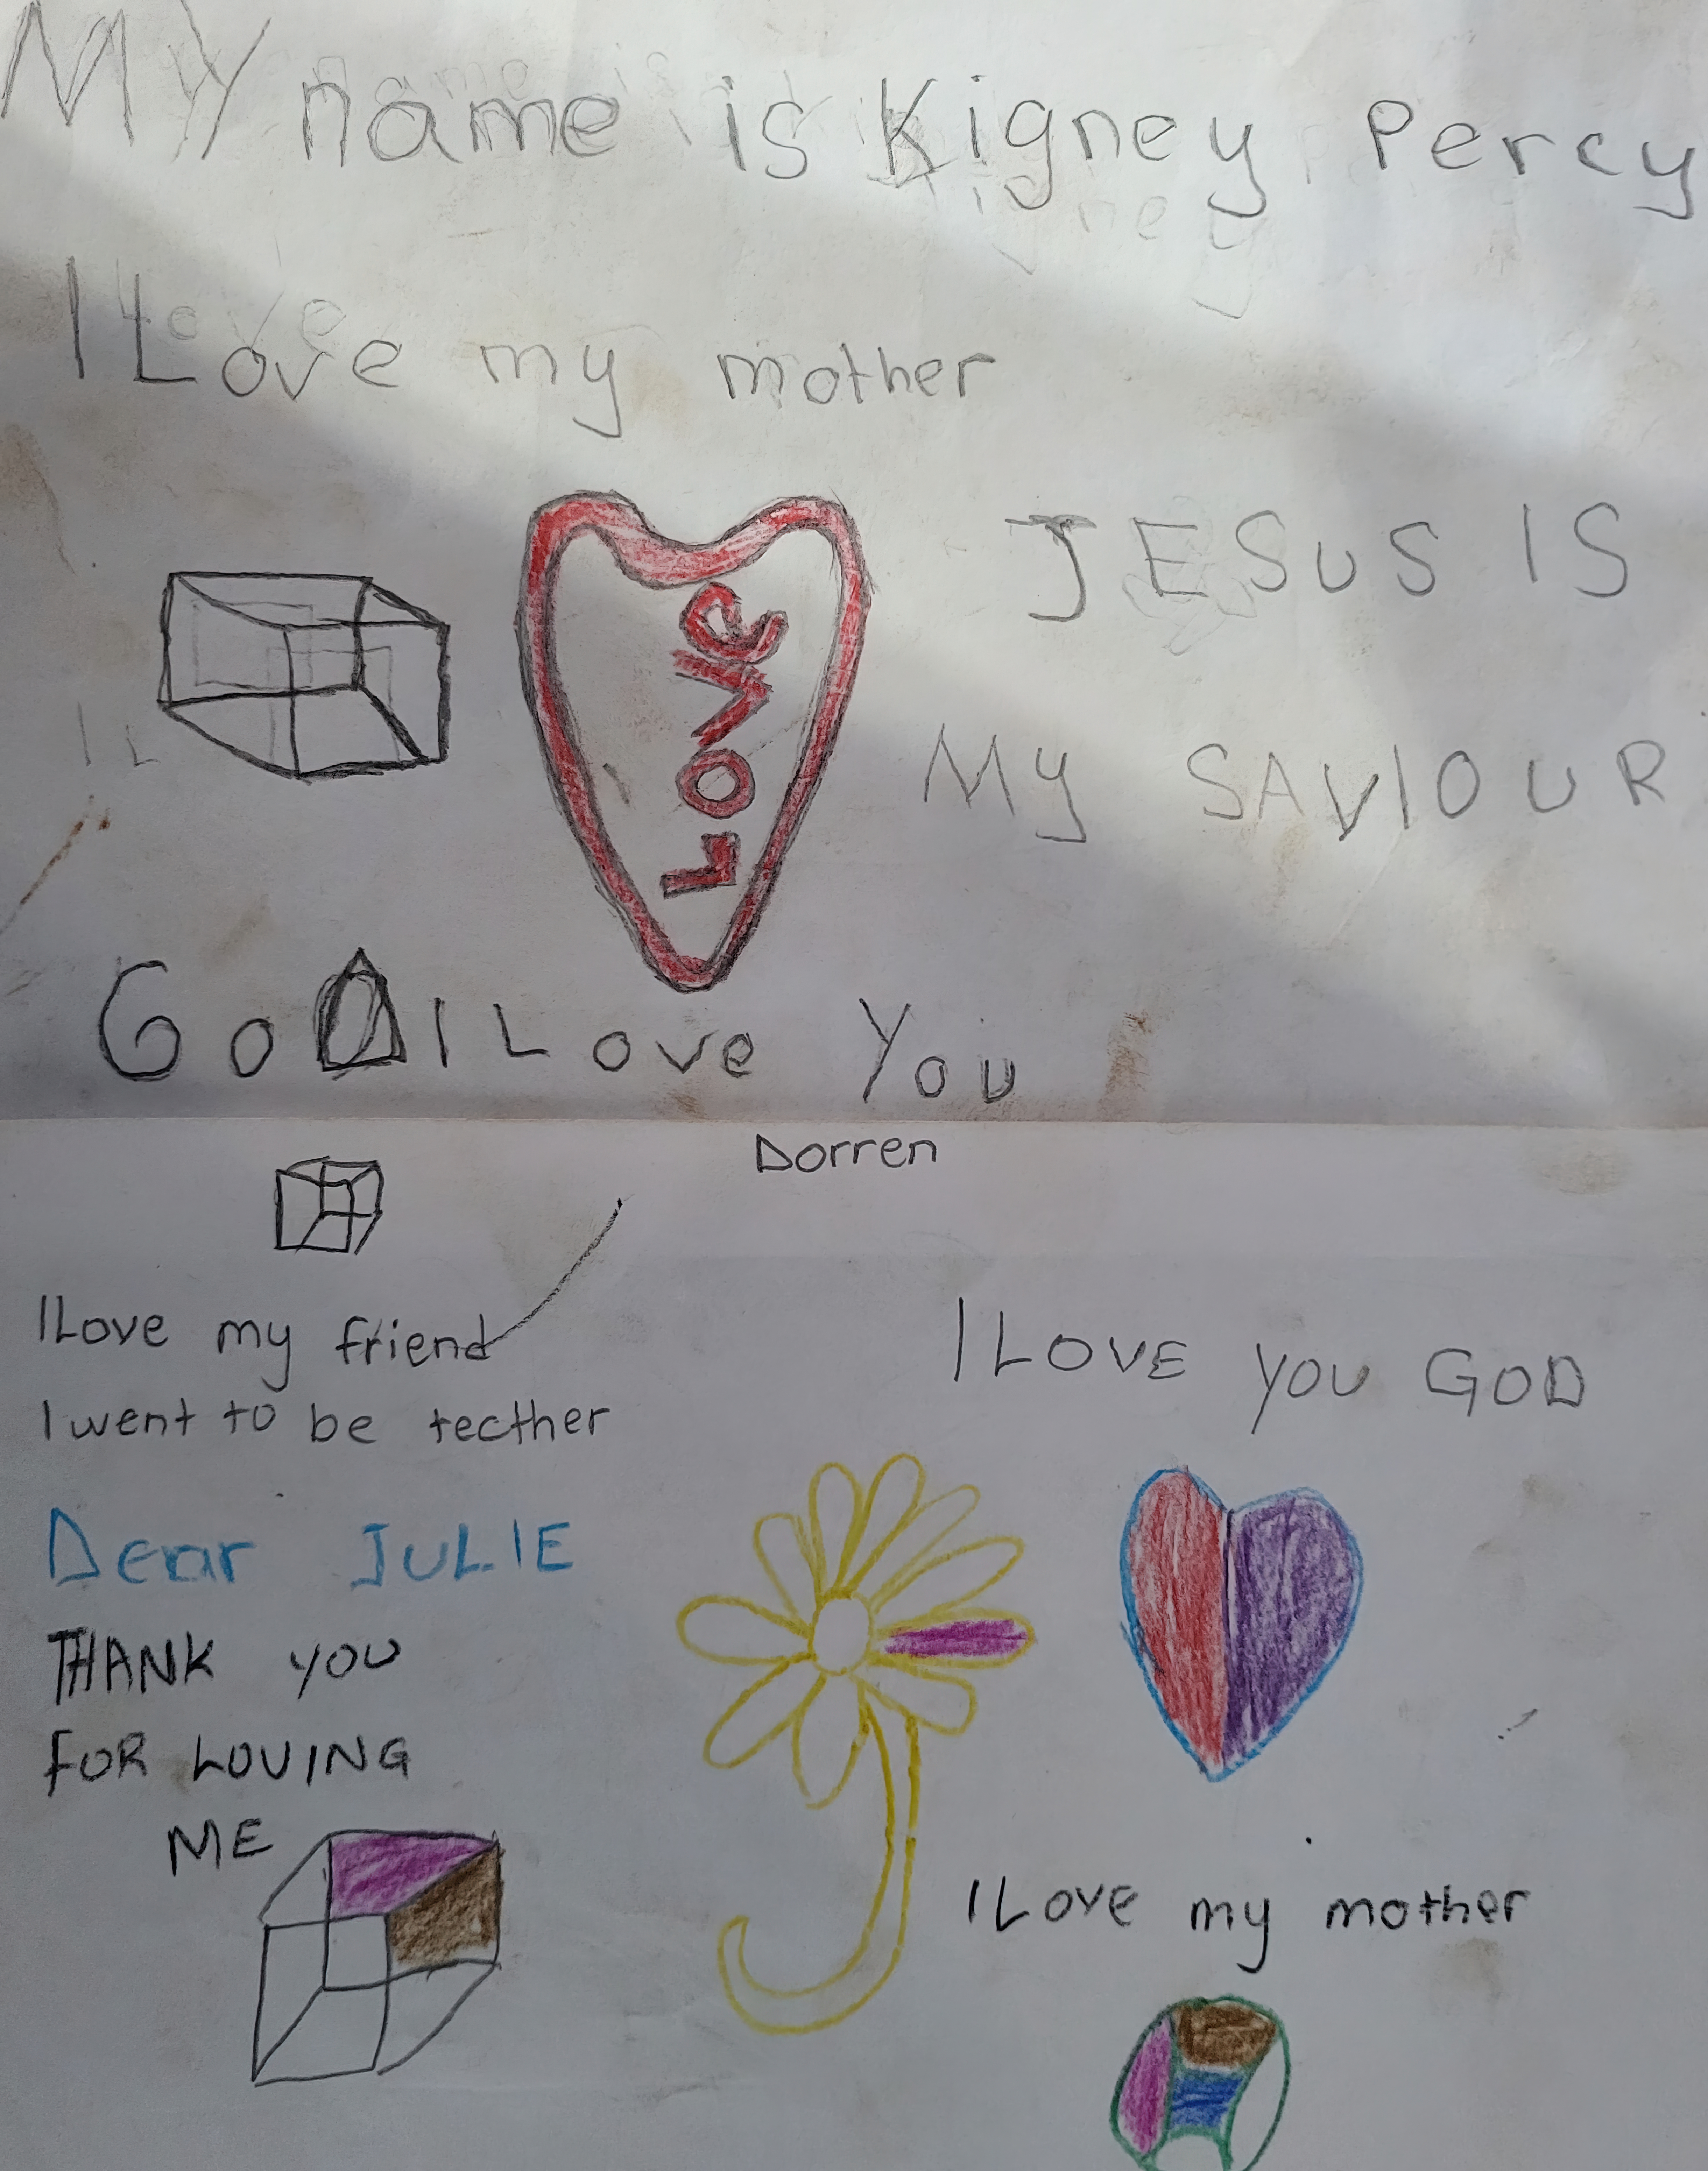 MY name is Kigney Percy
I Love my mother
JESUS IS
MY SAVIOUR
LOVE
GOD I Love You
Dorren
I Love my friend
I went to be tecther
I LOVE YOU GOD
Dear JULIE
THANK YOU
FOR LOVING
ME
I Love my mother